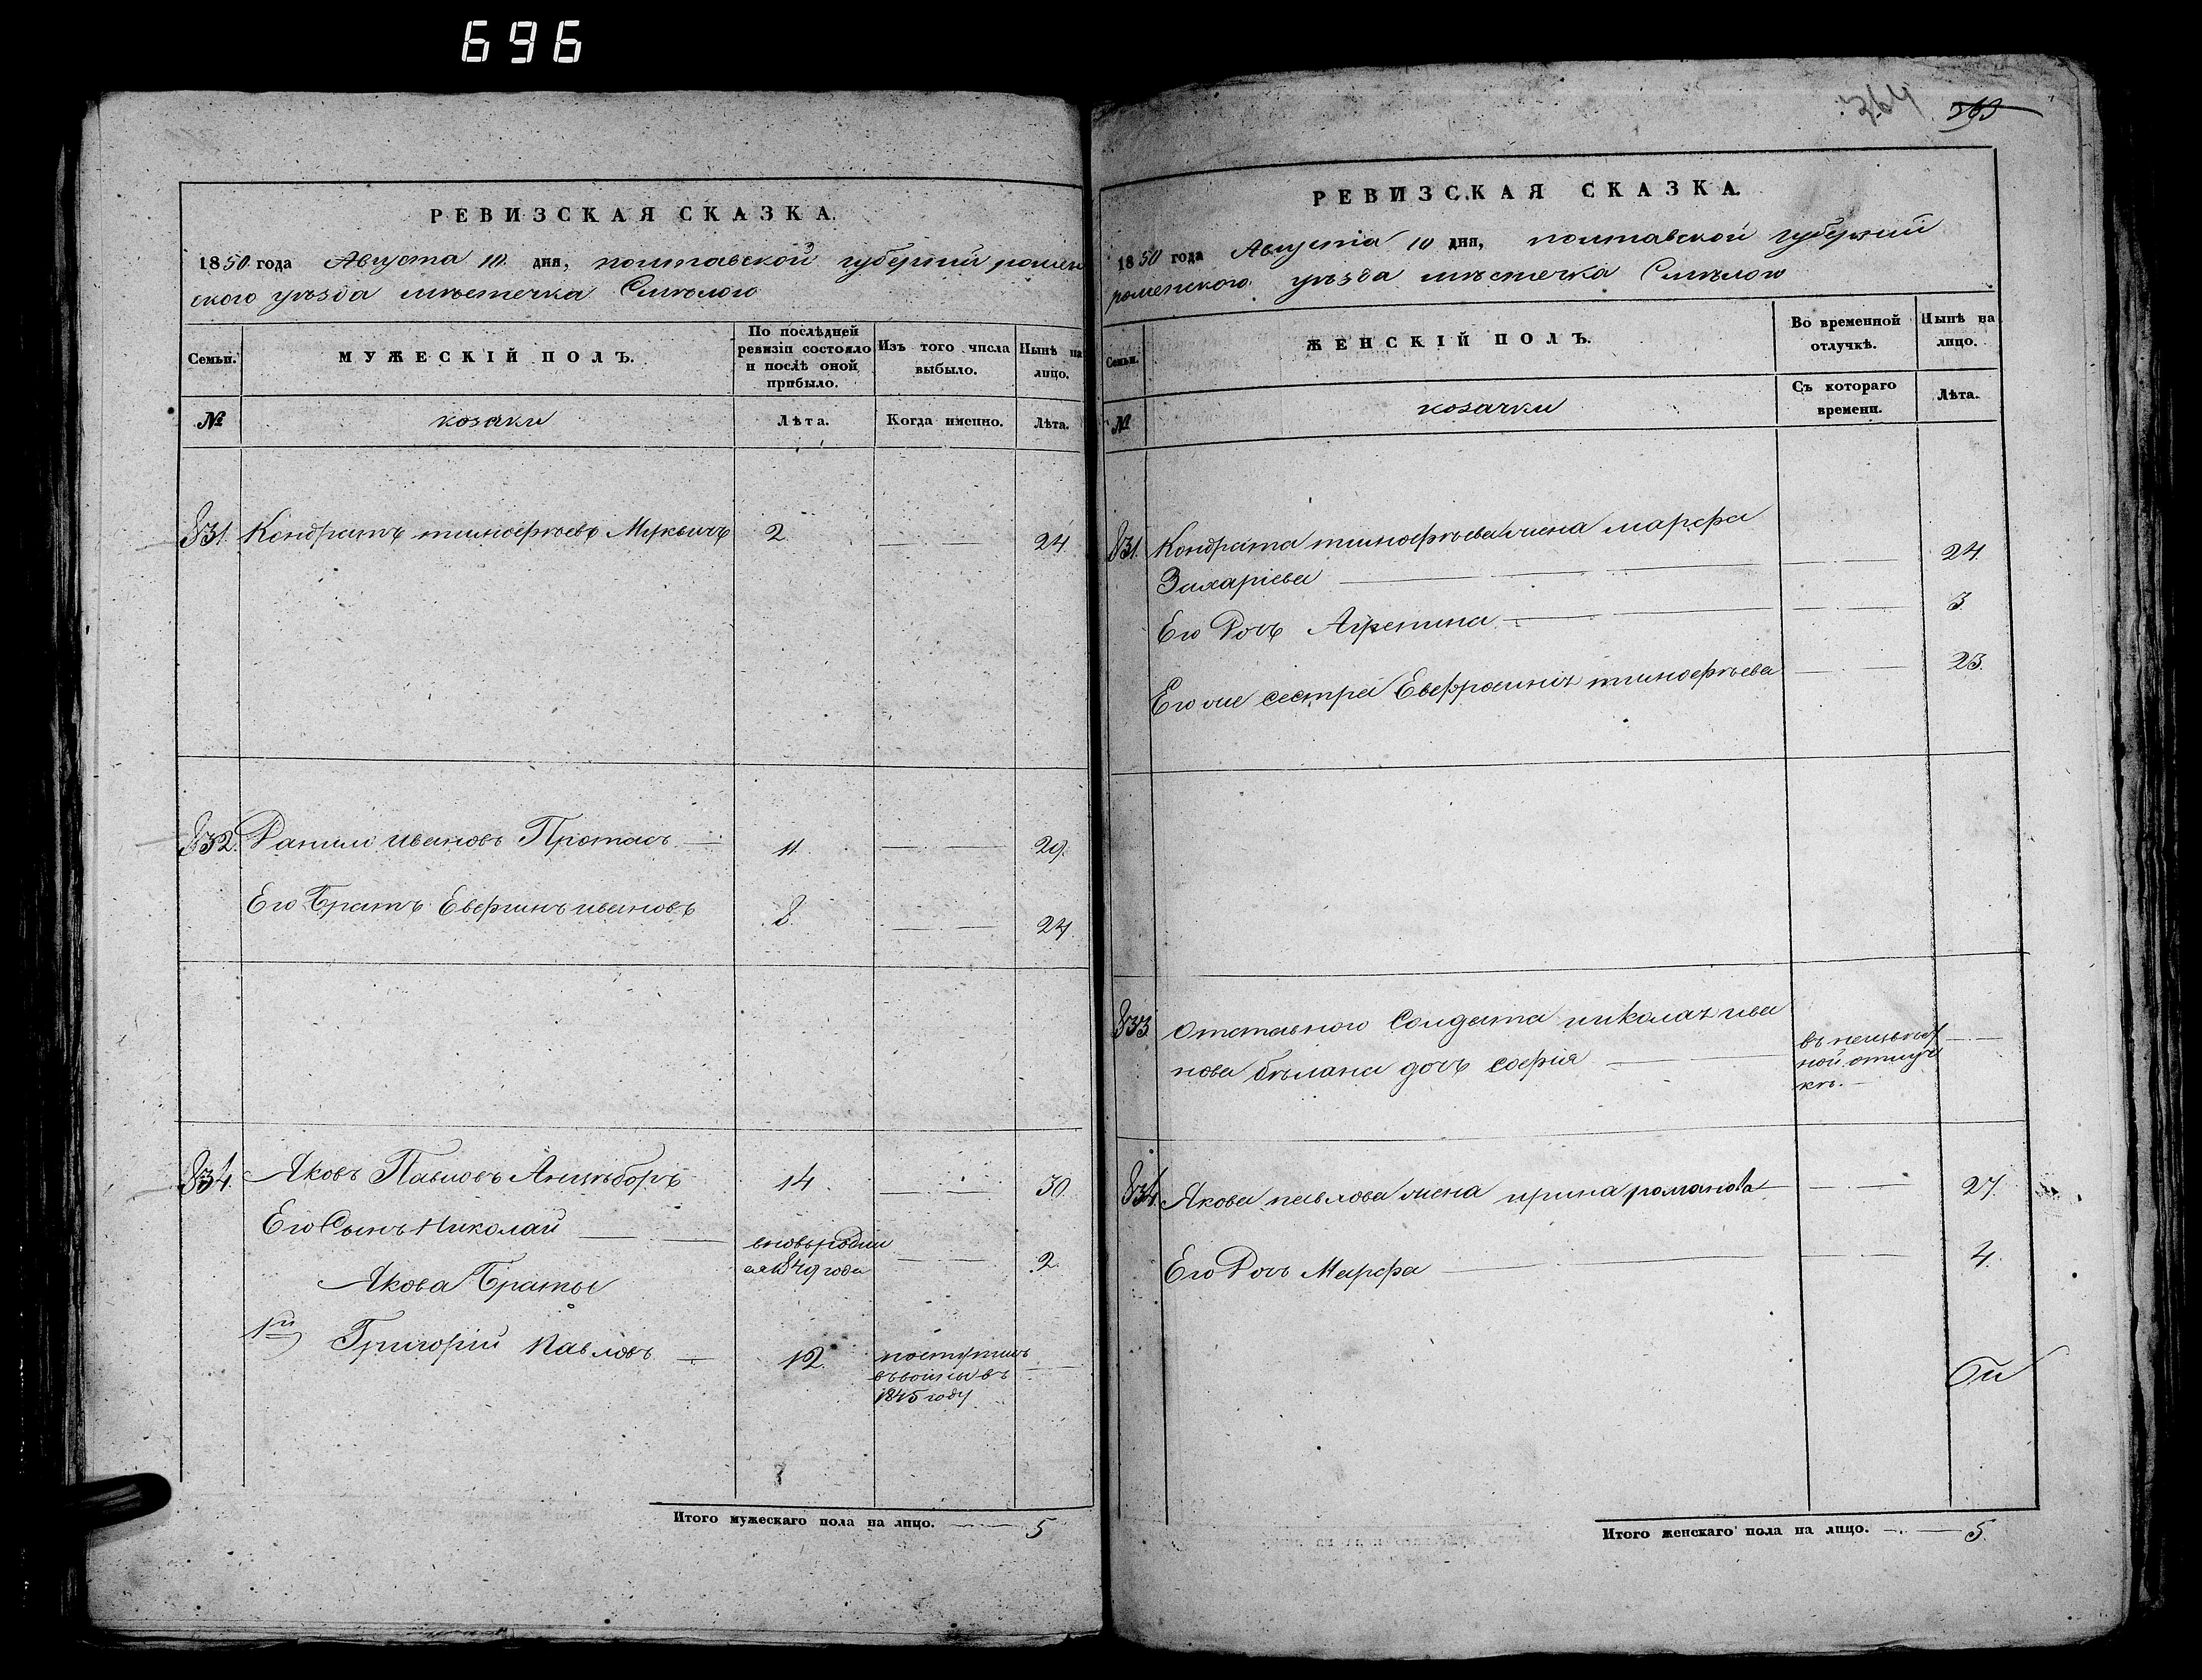 696
РЕВИЗСКАЯ СКАЗКА.
1850 года Августа 10 дня, полтавской губерніи ромен
ского уѣзда мѣстечка Смѣлого
Семьи.
МУЖЕСКІЙ ПОЛЪ.
По послѣдней
ревизіи состояло
и послѣ оной
прибыло.
Изъ того числа
выбыло.
Нынѣ на
лицо.
№
козаки
Лѣта.
Когда именно.
Лѣта.
831. Кондратъ тимофѣевъ 2 24
832. Данило ивановъ Протасъ 11. 29.
Его Братъ Евергинъ ивановъ 8. 24
834. Яковъ Павловъ 14 30.
Его Сынъ Николай вновьродил
ся 1849 года 2.
Якова Братья
1й Григорій Павловъ 12. поступилъ
въ
1845 году
Итого мужескаго пола на лицо. 5
264 263
РЕВИЗСКАЯ СКАЗКА.
1850 года Августа 10 дня, полтавской губерніи
роменского уѣзда мѣстечка Смѣлого
Семьи.
ЖЕНСКІЙ ПОЛЪ.
Во временной
отлучкѣ.
Нынѣ на
лицо.
№
козачки
Съ котораго
времени.
Лѣта.
831. Кондрата тимофѣева жена марфа
Захаріева 24.
Его Дочь Агрепина 3
Его же сестра Евфросинія тимофѣева 23.
833 отставного Солдата николая ива
нова бѣлана дочь софія
въ неизвѣст
ной отлуч
кѣ.
834. Якова павлова жена ирина романова 27.
Его Дочь Марфа 4.
Итого женскаго пола на лицо. 5.